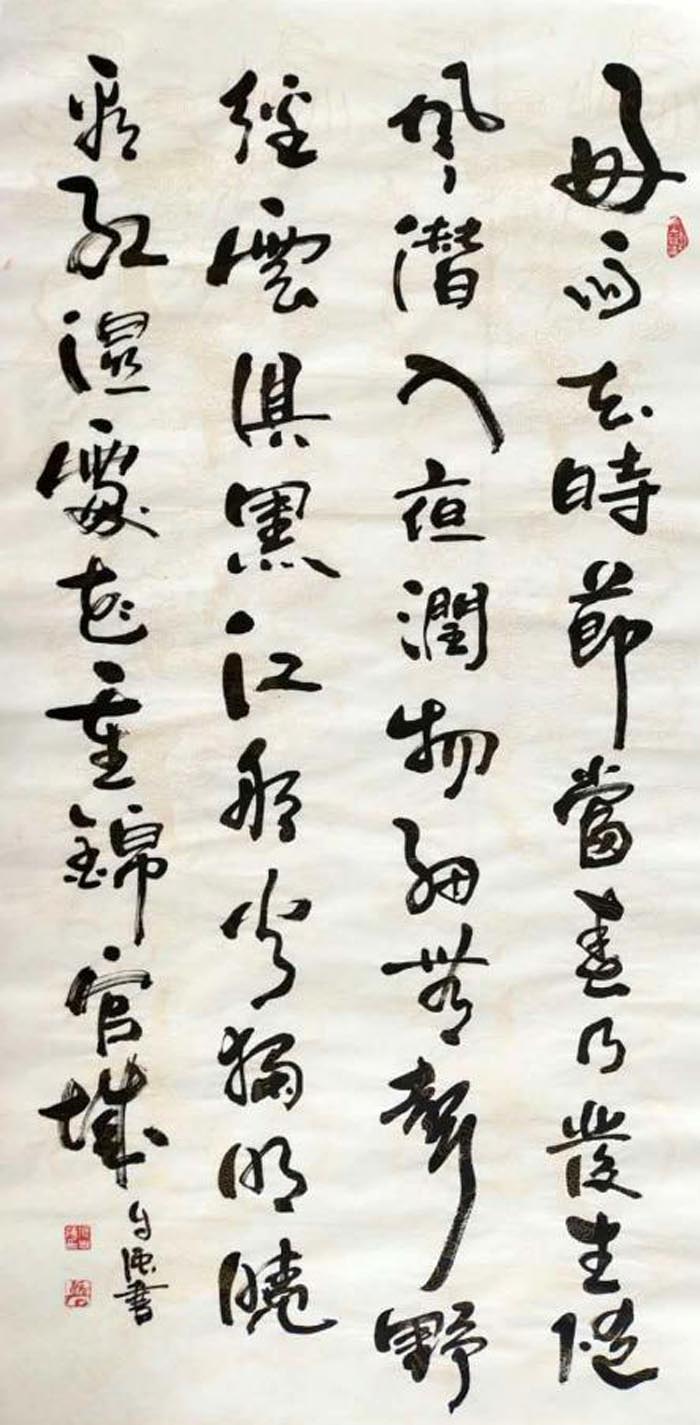 好雨知時節當春乃發生隨
風潛入夜潤物細無聲野
經雲俱黑江船火獨明曉
看紅湿處花重錦官城
書